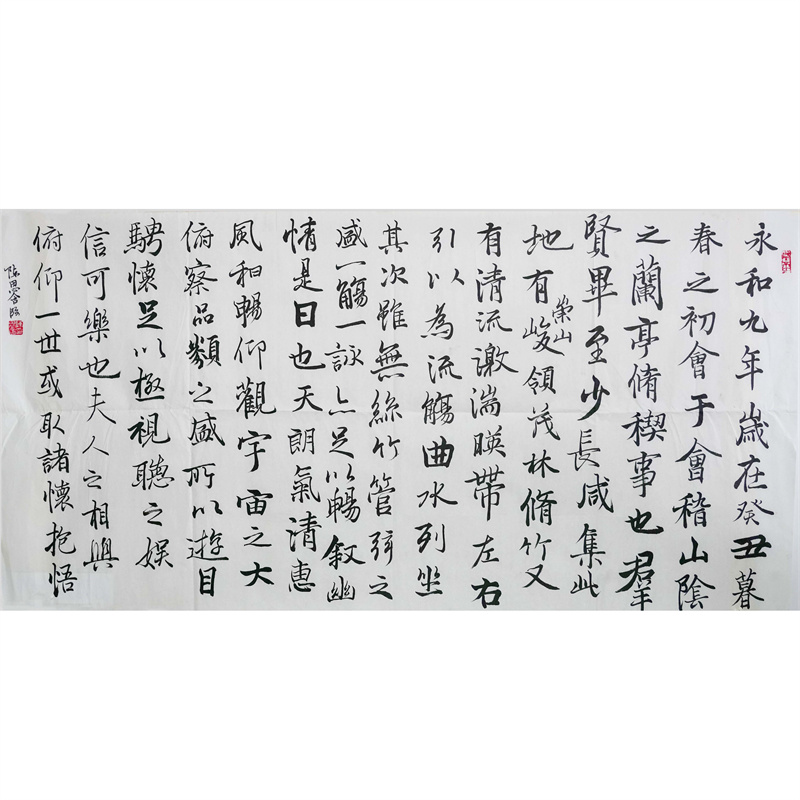 永和九年歲在癸丑暮
春之初會于會稽山陰
之蘭亭脩稧事也羣
賢畢至少長咸集此
地有崇山峻領茂林脩竹又
有清流激湍暎帶左右
引以為流觴曲水列坐
其次雖無絲竹管弦之
盛一觴一詠亦足以暢敘幽
情是日也天朗氣清惠
風和暢仰觀宇宙之大
俯察品類之盛所以遊目
騁懷足以極視聽之娛
信可樂也夫人之相與
俯仰一世或取諸懷抱悟